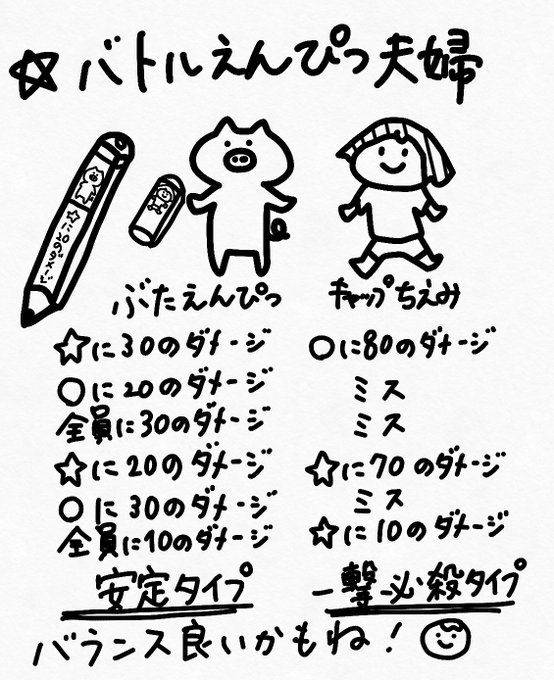 ☆バトルえんぴつ夫婦
☆に20のダメージ
ぶたえんぴつ
☆に30のダメージ
○に20のダメージ
全員に30のダメージ
☆に20のダメージ
○に30のダメージ
全員に10のダメージ
安定タイプ
キャップちえみ
○に80のダメージ
ミス
ミス
☆に70のダメージ
ミス
☆に10のダメージ
一撃必殺タイプ
バランス良いかもね！